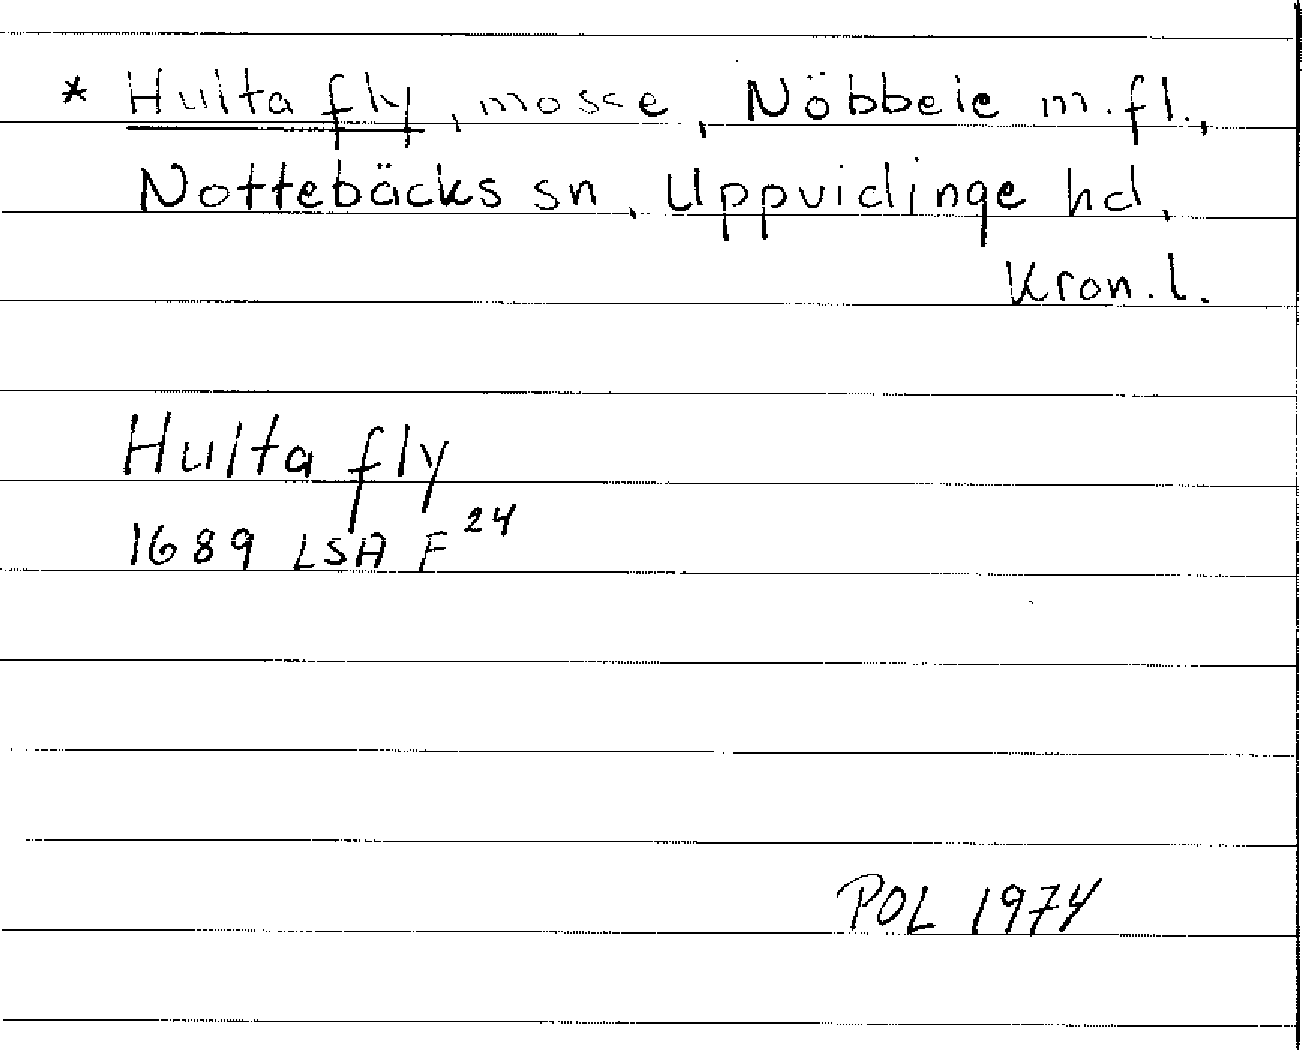 * Hulta fly, mosse, Nöbbele m.fl.,
Nottebäcks sn, Uppvidinge hd,
Kron. l.
Hulta fly
1689 LSA F 24
POL 1974